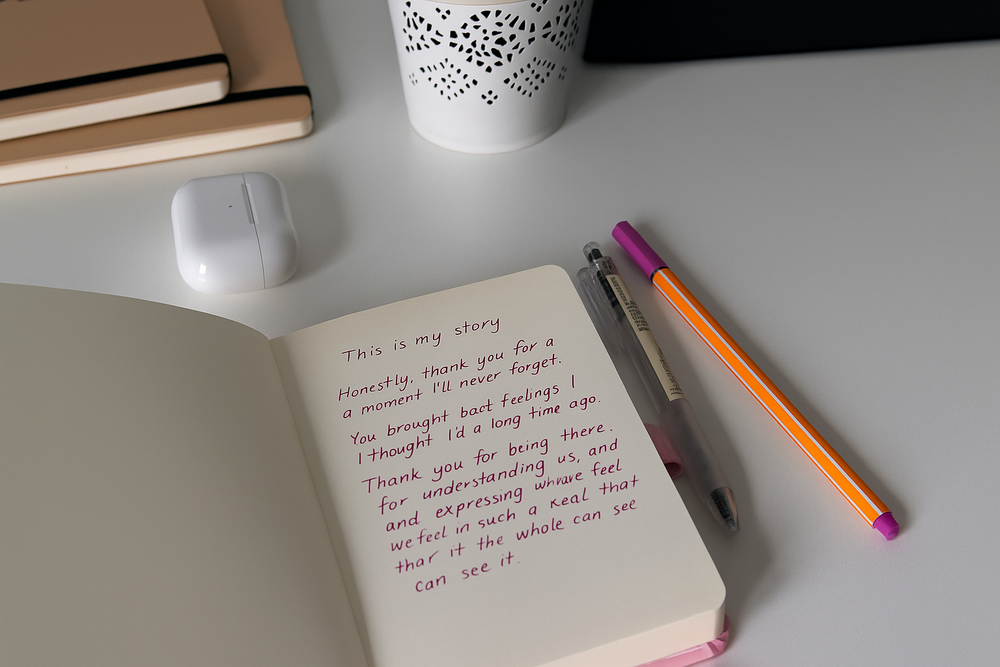 This is my story
Honestly, thank you for a
a moment I'll never forget.
You brought bact feelings I
I thought I'd a long time ago.
Thank you for being there.
for understanding us, and
and expressing whvave feel
we feel in such a keal that
thar it the whole can see
can see it.